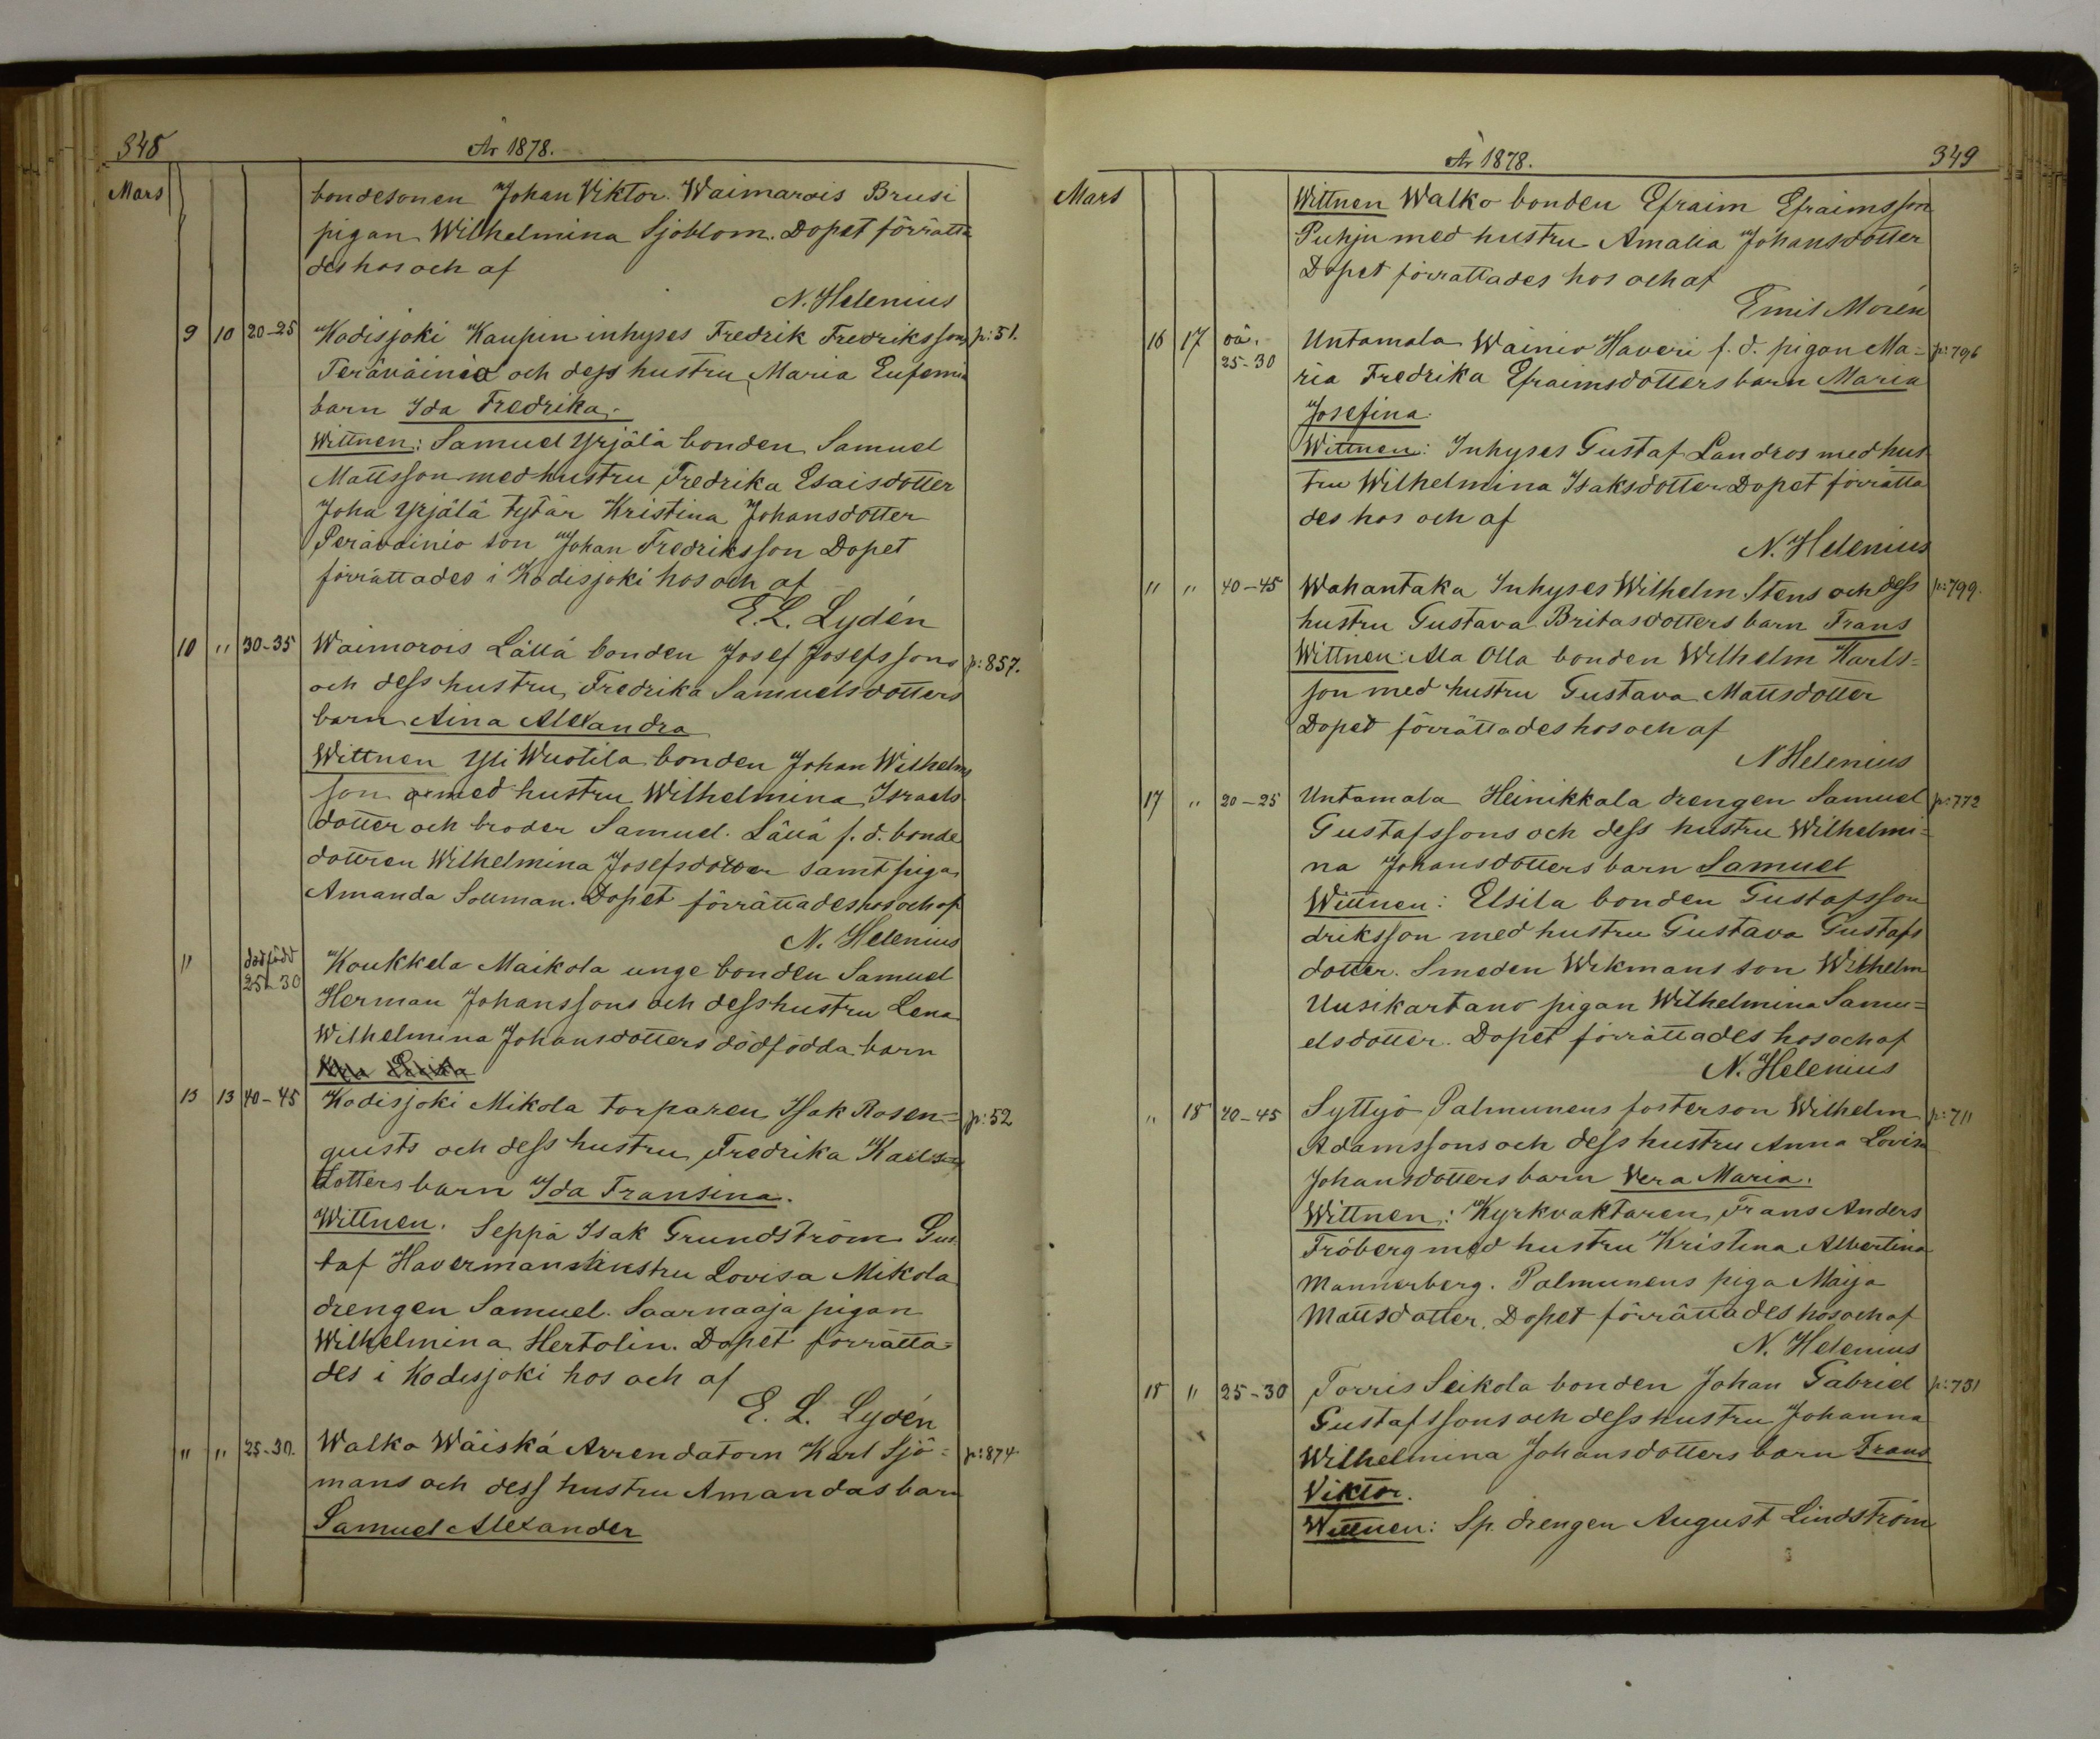 348
År 1878.
Mars
bondesonen Johan Viktor. Waimarois Brusi
pigan Wilhelmina Sjöblom. Dopet förrätta
des hos och af
N. Helenius
9 10 20-25 Kodisjoki Kaupin inhyses Fredrik Fredrikssons p: 51.
Perävainio och dess hustru Maria Eufemia
barn Ida Fredrika.
Wittnen: Samuel Yrjälä bonden Samuel
Mattsson med hustru Fredrika Esaisdotter
Joha Yrjälä tytär Kristina Johansdotter
Perävainio son Johan Fredriksson Dopet
förrättades i Kodisjoki hos och af
E. L. Lydén
10 " 30-35 Waimorois Lällä bonden Josef Josefssons p: 857.
och dess hustru Fredrika Samuelsdotters
barn Aina Alexandra
Wittnen Yli Wuotila bonden Johan Wilhelms
son med hustru Wilhelmina Israels
dotter och broder Samuel. Lällä f. d. bonde
dottren Wilhelmina Josefsdotter samt piga
Amanda Sollman. Dopet förrättades hos och af
N. Helenius
" dödfödd 25-30 Koukkela Maikola unge bonden Samuel
Herman Johanssons och dess hustru Lena
Wilhelmina Johansdotters dödfödda barn
13 13 40-45 Kodisjoki Mikola torparen Isak Rosen= p: 52
quists och dess hustru Fredrika Karls=
dotters barn Ida Fransina.
Wittnen. Seppä Isak Grundström Gus
taf Havermans hustru Lovisa Mikola
drengen Samuel. Saarnaaja pigan
Wilhelmina Hertolin. Dopet förrätta=
des i Kodisjoki hos och af
E. L. Lydén
" " 25-30. Walko Wäiskä Arrendatorn Karl Sjö= p: 874.
mans och dess hustru Amandas barn
Samuel Alexander
År 1878.
349
Mars
Wittnen Walko bonden Efraim Efraimsson
Puhju med hustru Amalia Johansdotter
Dopet förrättades hos och af
Emil Morén
16 17 oä. 25-30 Untamala Wainio Haveri f. d. pigan Ma= p: 796
ria Fredrika Efraimsdotters barn Maria
Josefina.
Wittnen: Inhyses Gustaf Landros med hus
tru Wilhelmina Isaksdotter Dopet förrätta
des hos och af
N. Helenius
" " 40-45 Wahantaka Inhyses Wilhelm Stens och dess p: 799.
hustru Gustava Britasdotters barn Frans
Wittnen: Ala Olla bonden Wilhelm Karls=
son med hustru Gustava Mattsdotter
Dopet förrättades hos och af
N Helenius
17 " 20-25 Untamala Heinikkala drengen Samuel p: 772
Gustafssons och dess hustru Wilhelmi=
na Johansdotters barn Samuel
Wittnen: Elsila bonden Gustafsson
driksson med hustru Gustava Gustafs
dotter. Smeden Wikmans son Wilhelm
Uusikartano pigan Wilhelmina Samu=
elsdotter. Dopet förrättades hos och af
N. Helenius
" 18 40-45 Syttyö Palmunens fosterson Wilhelm p: 711
Adamssons och dess hustru Anna Lovisa
Johansdotters barn Vera Maria.
Wittnen: Kyrkvaktaren Frans Anders
Fröberg med hustru Kristina Albertina
Mannerberg. Palmunens piga Maija
Mattsdotter. Dopet förrättades hos och af
N. Helenius
18 " 25-30 Torris Seikola bonden Johan Gabriel p: 731
Gustafssons och dess hustru Johanna
Wilhelmina Johansdotters barn Frans
Viktor.
Wittnen: Sp. drengen August Lindström